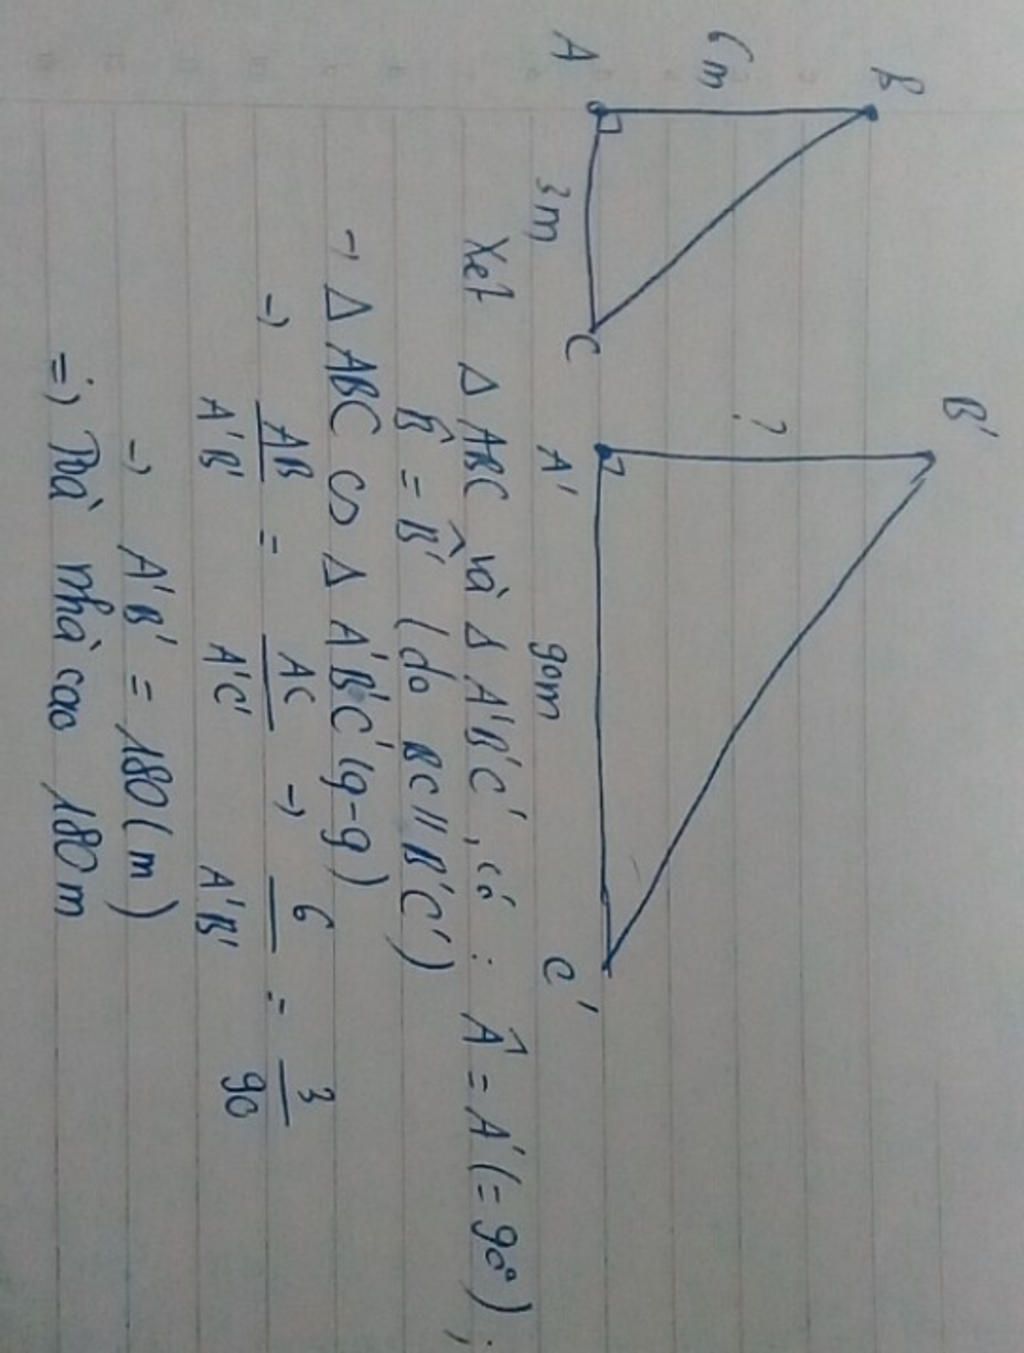 B
6m
A
3m
C
B'
?
A'
90m
C'
Xét Δ ABC và Δ A'B'C', có : Â = A' (= 90°) ;
B̂ = B̂' (do BC // B'C')
→ Δ ABC ∽ Δ A'B'C' (g-g)
→ AB/A'B' = AC/A'C' → 6/A'B' = 3/90
→ A'B' = 180 (m)
=> Toà nhà cao 180 m